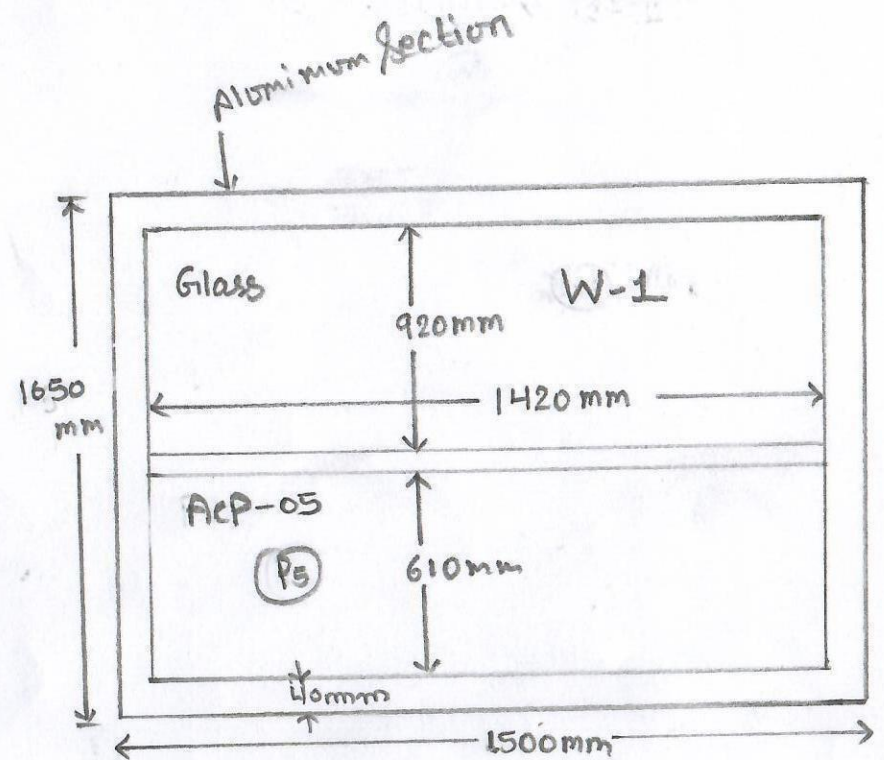 Aluminum Section
Glass
W-1
920mm
1650
mm
1420mm
ACP-05
P5
610mm
40mm
1500mm